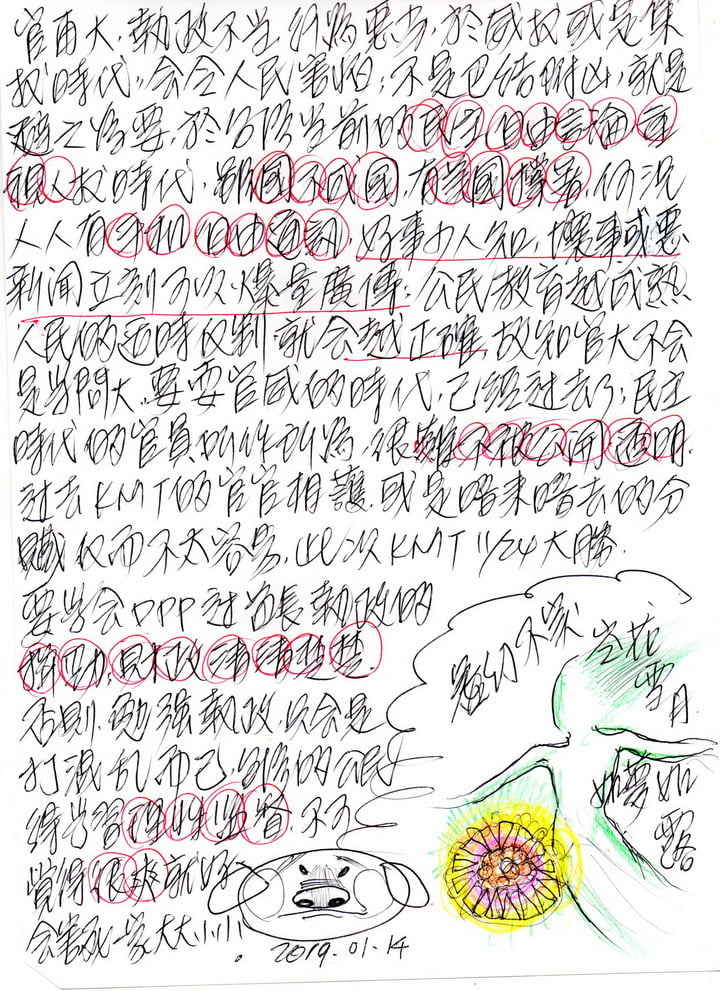 官再大，執政不當，行為惡劣，於威权或是集
权時代，会令人民害怕，不是巴結附凶，就是
避之為要，於台灣当前的民主自由言論主
人权時代，國不成國，有美國撐著，何況
人人有手机自由通訊，好事少人知，壞事或惡
新闻立刻可以爆量廣傳；公民教育越成熟
人民的适時仅制，就会越正確，故知官大不会
是学問大，要耍官威的時代，已经过去了；民主
時代的官員所作所為，很難不被公開透明，
过去KMT的官官相護，或是喀来喀去的分
贓仅而不太容易，此次KMT 11/24 大勝，
要学会DPP过首長執政的
民政清清楚楚，
否則，勉強執政，只会是
打混乱而已，台灣的公民
得学習理性监督，不可
覚得很爽就好
会害死一家大大小小。
虛幻不实
空花
雪月
如夢如
露
2019.01.14